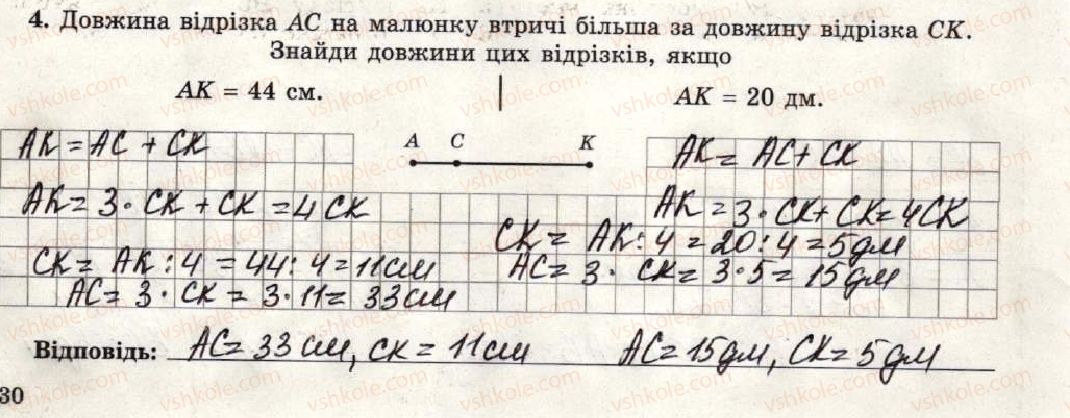 4. Довжина відрізка AC на малюнку втричі більша за довжину відрізка CK.
Знайди довжини цих відрізків, якщо
AK = 44 см.
AK = 20 дм.
A C K
AK = AC + CK
AK = 3 · CK + CK = 4 CK
CK = AK : 4 = 44 : 4 = 11 см
AC = 3 · CK = 3 · 11 = 33 см
AK = AC + CK
AK = 3 · CK + CK = 4 CK
CK = AK : 4 = 20 : 4 = 5 дм
AC = 3 · CK = 3 · 5 = 15 дм
Відповідь: AC = 33 см, CK = 11 см AC = 15 дм, CK = 5 дм
30
vshkole.com